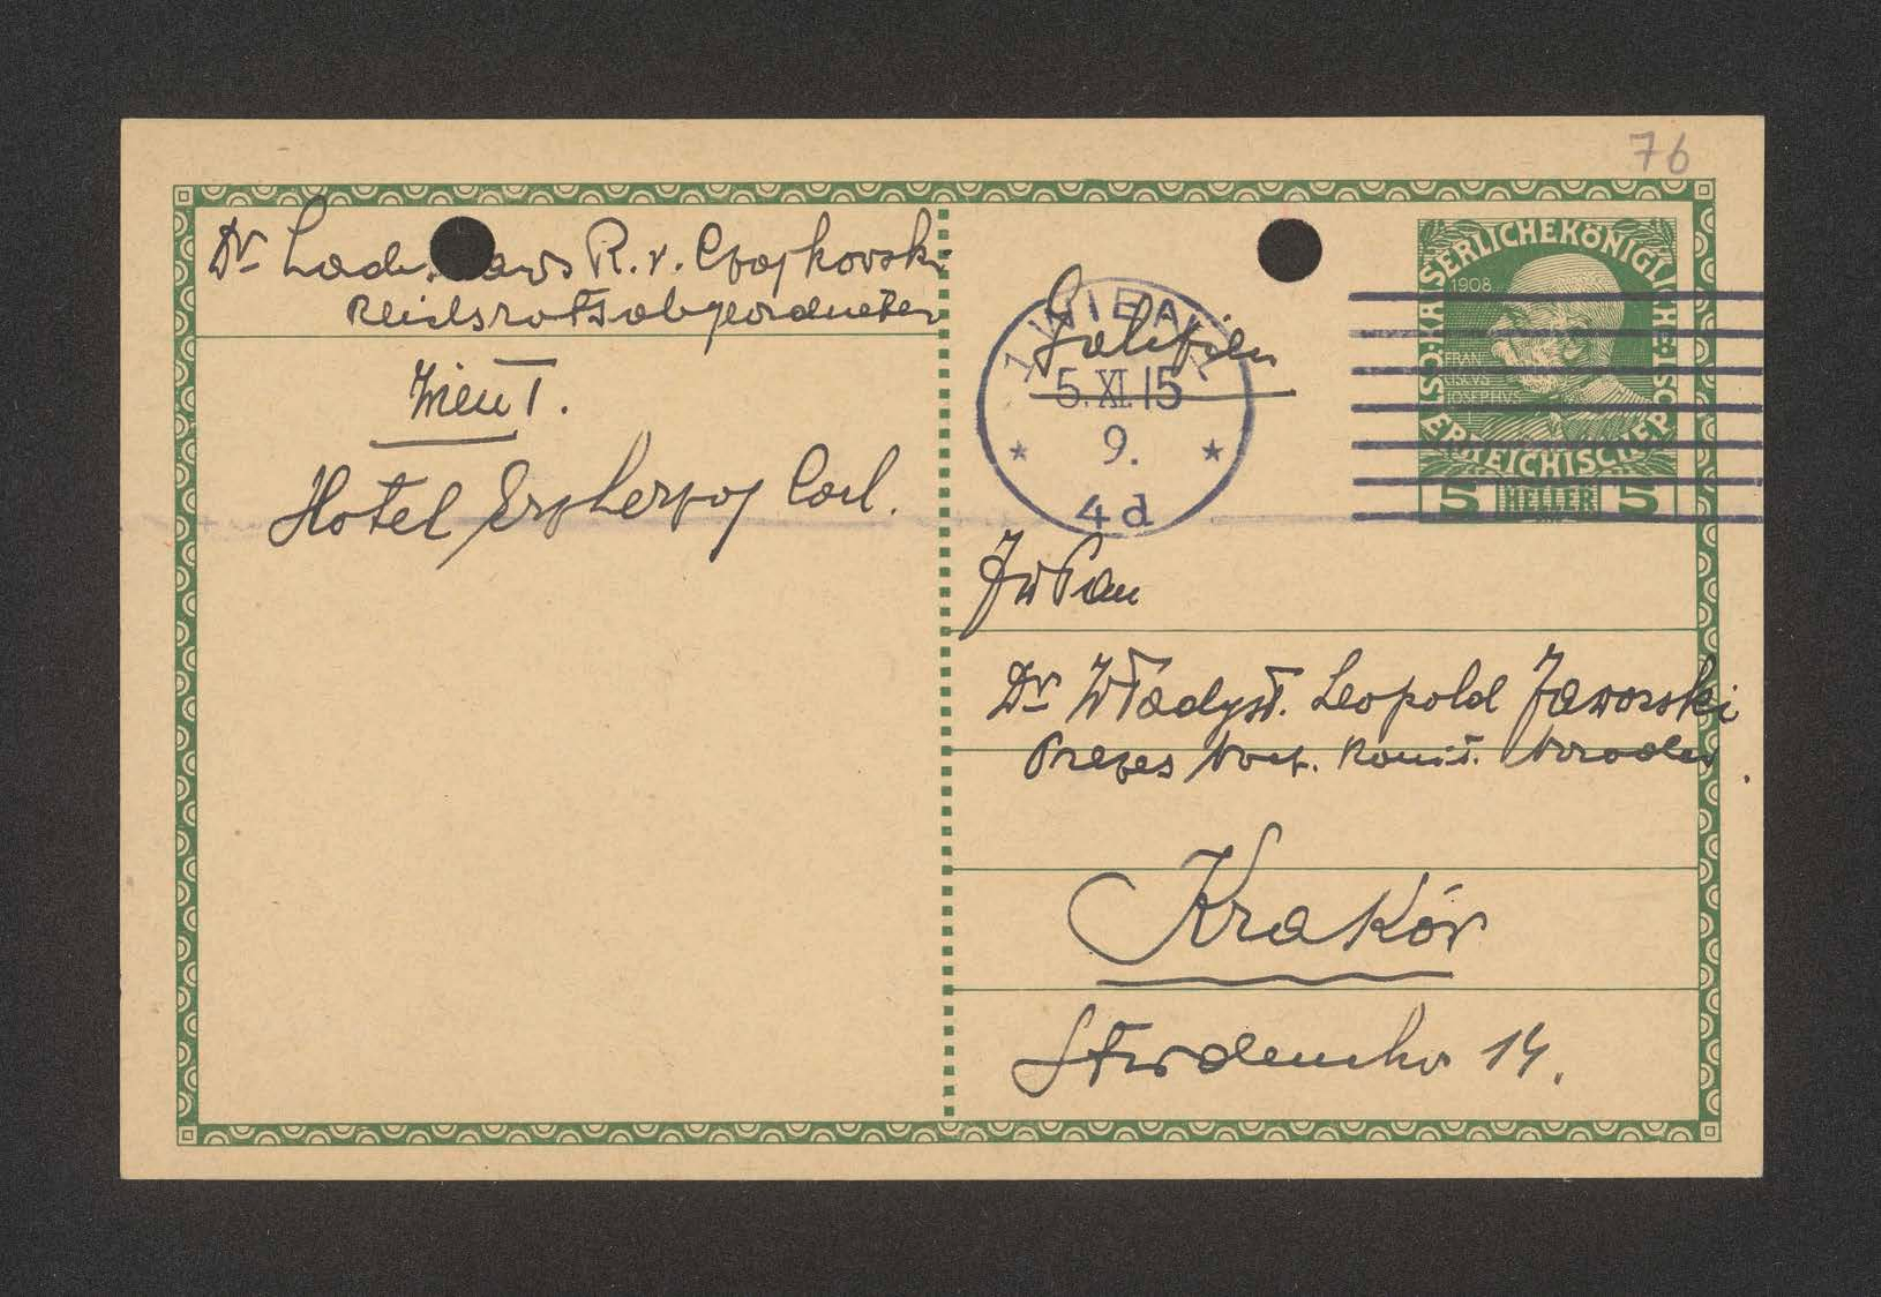 76
Dr Lad⁠islaus R. v. Czajkowski
Reichsratsabgeordneter
Wien I.
Hotel Erzherzog Carl.
Galizien
1 WIEN 1
5. XI. 15
9.
4d
KAISERLICHEKÖNIGLICHE ÖSTERREICHISCHE POST
1908
FRAN
CISCVS
JOSEPHVS
5 HELLER 5
JWPan
Dr Władysł. Leopold Jaworski
Prezes Nacz. Komit. Narodow.
Kraków
Studencka 14.